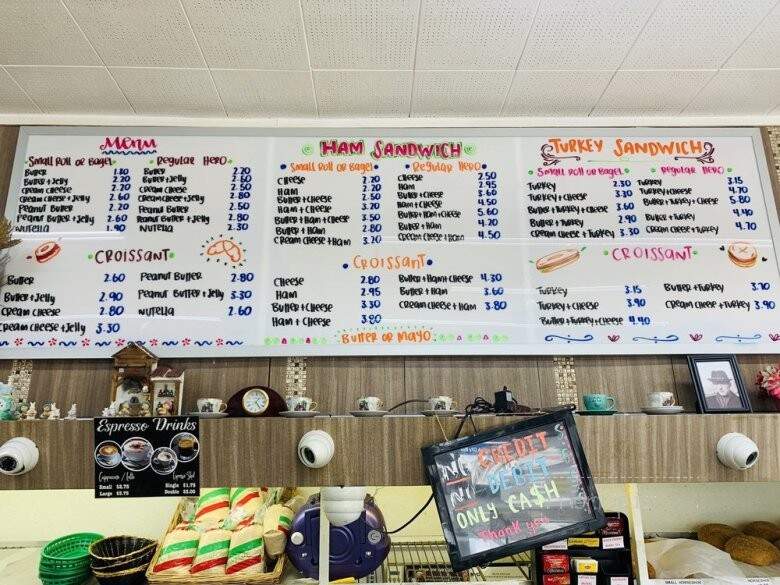 Menu
Small Roll or Bagel
Butter 1.80
Butter + Jelly 2.20
Cream Cheese 2.20
Cream Cheese + Jelly 2.70
Peanut Butter 2.20
Peanut Butter + Jelly 2.60
Nutella 1.90
Regular Hero
Butter 2.20
Butter + Jelly 2.60
Cream Cheese 2.50
Cream Cheese + Jelly 2.80
Peanut Butter 2.50
Peanut Butter + Jelly 2.80
Nutella 2.30
Croissant
Butter 2.60
Butter + Jelly 2.90
Cream Cheese 2.80
Cream Cheese + Jelly 3.30
Peanut Butter 2.80
Peanut Butter + Jelly 3.30
Nutella 2.60
Ham Sandwich
Small Roll or Bagel
Cheese 2.20
Ham 2.20
Butter + Cheese 2.50
Ham + Cheese 3.20
Butter + Ham + Cheese 3.50
Butter + Ham 2.80
Cream Cheese + Ham 3.20
Regular Hero
Cheese 2.50
Ham 3.95
Butter + Cheese 3.60
Ham + Cheese 4.50
Butter + Ham + Cheese 5.60
Butter + Ham 4.20
Cream Cheese + Ham 4.50
Croissant
Cheese 2.80
Ham 2.95
Butter + Cheese 3.30
Ham + Cheese 3.80
Butter + Ham + Cheese 4.30
Butter + Ham 3.60
Cream Cheese + Ham 3.80
Butter or Mayo
Turkey Sandwich
Small Roll or Bagel
Turkey 2.30
Turkey + Cheese 3.30
Butter + Turkey + Cheese 3.60
Butter + Turkey 2.90
Cream Cheese + Turkey 3.30
Regular Hero
Turkey 3.15
Turkey + Cheese 4.70
Butter + Turkey + Cheese 5.80
Butter + Turkey 4.40
Cream Cheese + Turkey 4.70
Croissant
Turkey 3.15
Turkey + Cheese 3.90
Butter + Turkey + Cheese 4.40
Butter + Turkey 3.70
Cream Cheese + Turkey 3.90
Espresso Drinks
Cappuccino / Latte
Small $2.75
Large $3.75
Espresso Shot
Single $1.75
Double $2.00
NO CREDIT
NO DEBIT
ONLY CA$H
Thank you